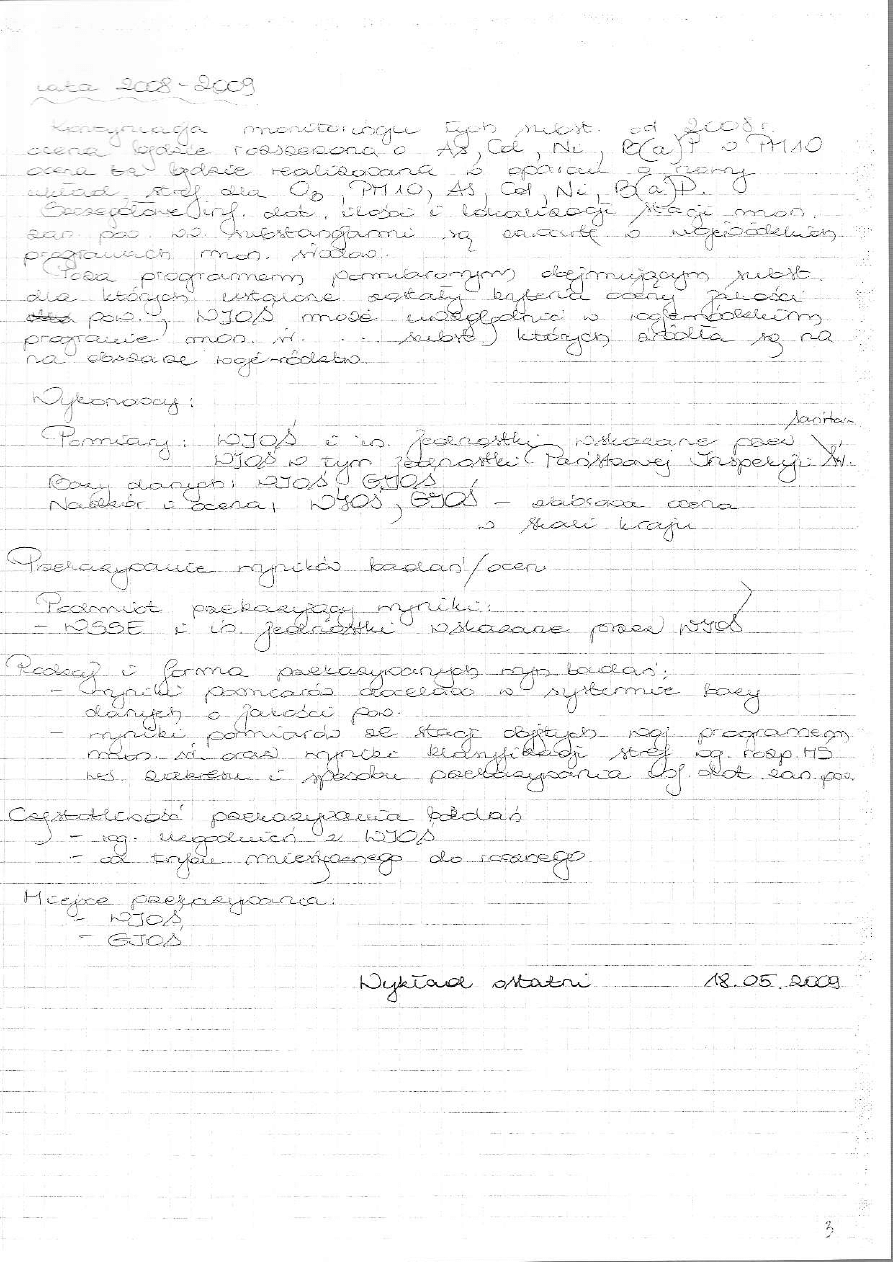 lata 2008-2009
Kontynuacja monitoringu tych subst. od 2008 r.
ocena będzie rozszerzona o As, Cd, Ni, B(a)P w PM10
ocena ta będzie realizowana w oparciu o nowy
układ stref dla O3, PM10, As, Cd, Ni, B(a)P.
Szczegółowe inf. dot. ilości i lokalizacji stacji mon.
zan. pow. ww substancjami są zawarte w wojewódzkich
programach mon. środow.
Poza programem pomiarowym obejmującym subst.
dla których ustalone zostały kryteria oceny jakości
pow., WIOŚ może uwzględnić w wojewódzkim
programie mon. śr. ... subst., których źródła są na
na obszarze województwa.
Wykonawcy:
sanitar.
Pomiary: WIOŚ i in. jednostki wskazane przez
WIOŚ w tym jednostki Państwowej Inspekcji
Bazy danych: WIOŚ, GIOŚ
Nadzór i ocena: WIOŚ, GIOŚ – zbiorcza ocena
w skali kraju
Przekazywanie wyników badań/ocen
Podmiot przekazujący wyniki:
- WSSE i in. jednostki wskazane przez WIOŚ
Rodzaj i forma przekazywanych wyn. badań:
- wyniki pomiarów docelowo w systemie bazy
danych o jakości pow.
- wyniki pomiarów ze stacji objętych woj. programem
mon. śr. oraz wyniki klasyfikacji stref wg. rozp. MŚ
ws. zakresu i sposobu przekazywania inf. dot. zan. pow.
Częstotliwość przekazywania badań
- wg. uzgodnień z WIOŚ
- od trybu miesięcznego do rocznego
Miejsce przekazywania:
- WIOŚ
- GIOŚ
Wykład ostatni 18.05.2009
3